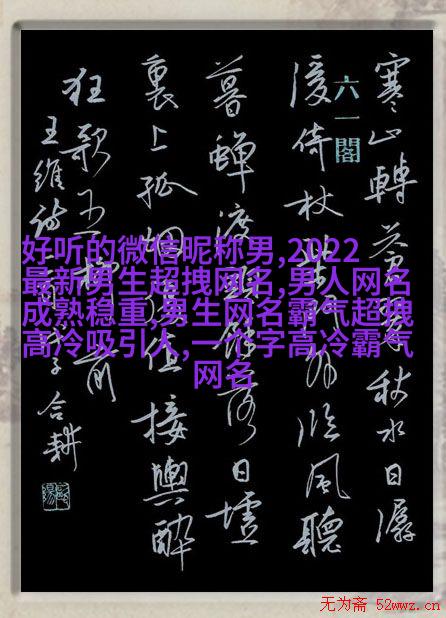 六一閣
寒山轉蒼翠秋水日潺
湲倚杖柴门外临風聽
暮蟬渡頭餘落日墟
裏上孤烟復值接輿醉
狂歌五柳前
王維詩
合耕
好听的微信昵称男,2022
最新男生超拽网名,男人网名
成熟稳重,男生网名霸气超拽
高冷吸引人,一个字高冷霸气
网名
无为斋 52wwz.cn